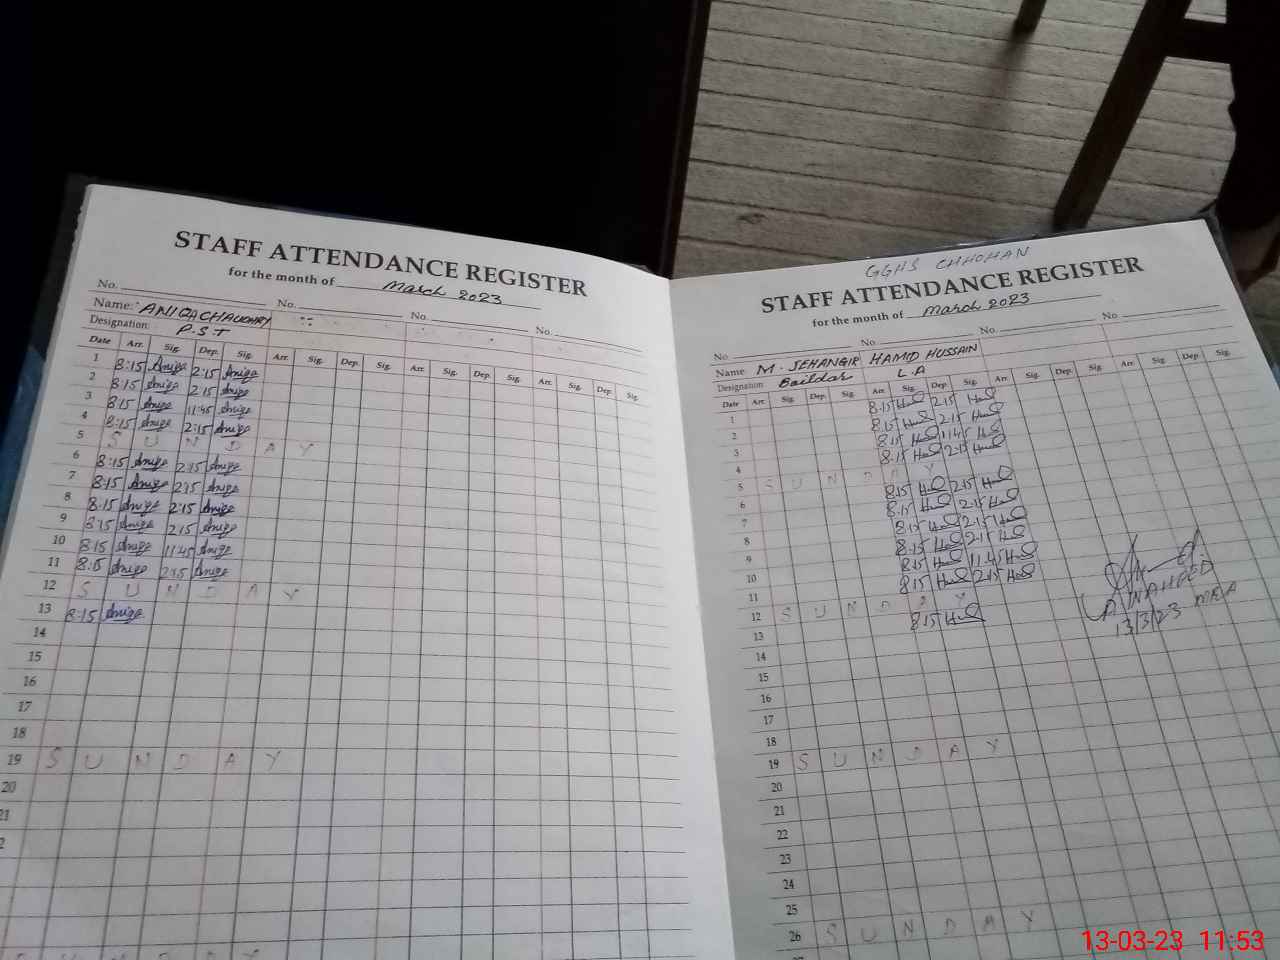 STAFF ATTENDANCE REGISTER
for the month of March 2023
No. No. No. No.
Name: ANIQA CHAUDHARY
Designation: P.S.T
Date Arr. Sig. Dep. Sig. Arr. Sig. Dep. Sig. Arr. Sig. Dep. Sig. Arr. Sig. Dep. Sig.
1 8:15 Aniqa 2:15 Aniqa
2 8:15 Aniqa 2:15 Aniqa
3 8:15 Aniqa 11:45 Aniqa
4 8:15 Aniqa 2:15 Aniqa
5 S U N D A Y
6 8:15 Aniqa 2:15 Aniqa
7 8:15 Aniqa 2:15 Aniqa
8 8:15 Aniqa 2:15 Aniqa
9 8:15 Aniqa 2:15 Aniqa
10 8:15 Aniqa 11:45 Aniqa
11 8:15 Aniqa 2:15 Aniqa
12 S U N D A Y
13 8:15 Aniqa
14
15
16
17
18
19 S U N D A Y
20
21
2
GGHS CHHOHAN
STAFF ATTENDANCE REGISTER
for the month of March 2023
No. No. No. No.
Name: M. JEHANGIR HAMID HUSSAIN
Designation: Baildar L.A
Date Arr. Sig. Dep. Sig. Arr. Sig. Dep. Sig. Arr. Sig. Dep. Sig. Arr. Sig. Dep. Sig.
1 8:15 2:15
2 8:15 2:15
3 8:15 11:45
4 8:15 2:15
5 S U N D A Y
6 8:15 2:15
7 8:15 2:15
8 8:15 2:15
9 8:15 2:15
10 8:15 11:45
11 8:15 2:15
12 S U N D A Y
13 8:15
14
15
16
17
18
19 S U N D A Y
20
21
22
23
24
25
26 S U N D A Y
NAHEED
13/3/23 MEA
13-03-23 11:53